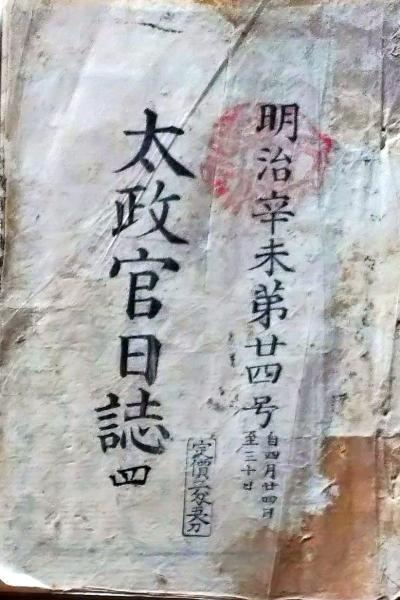 明治辛未第廿四号
自四月廿四日
至三十日
太政官日誌 四